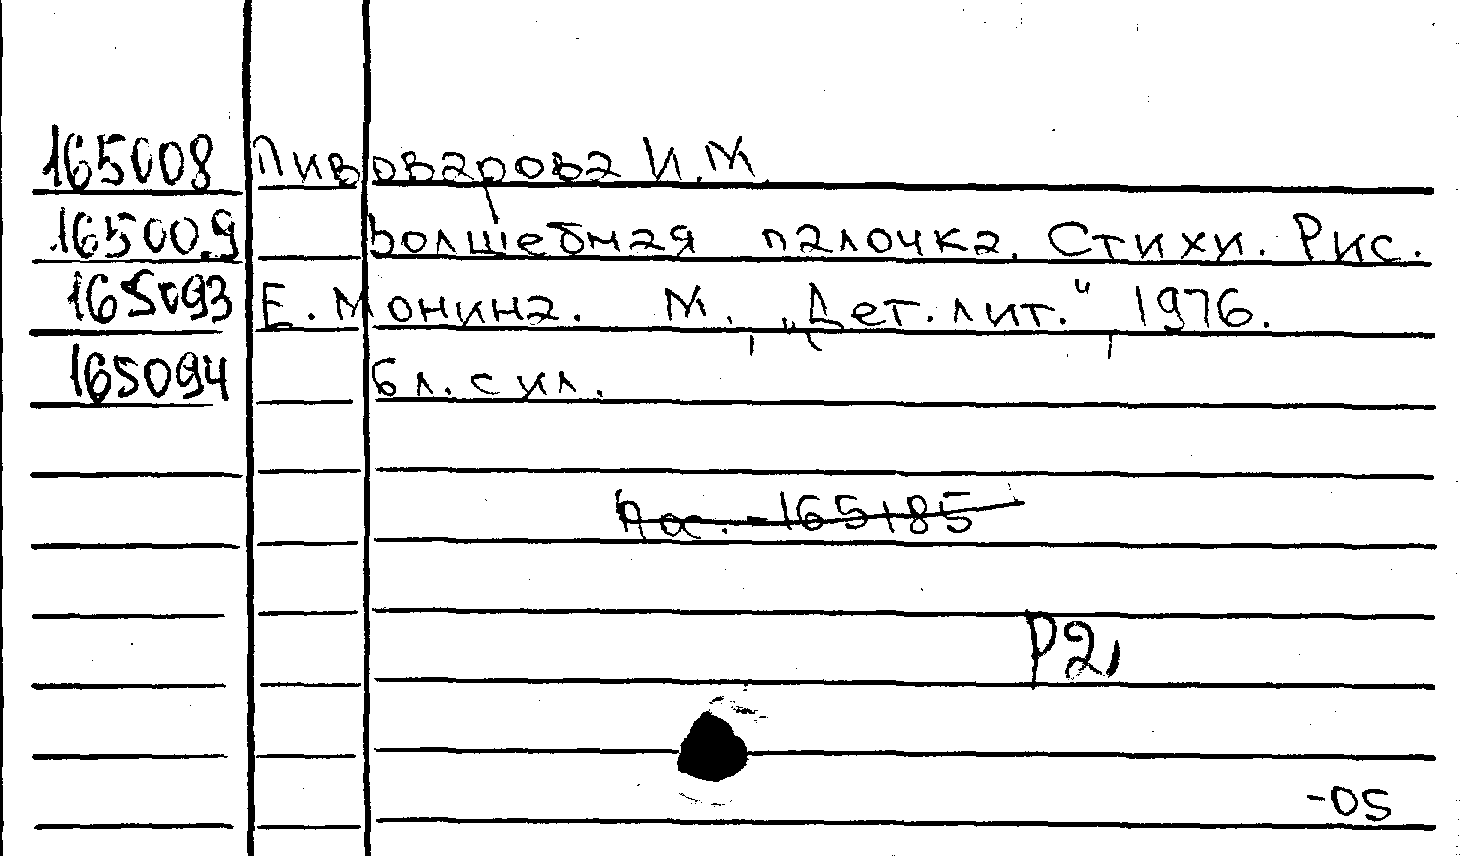 165008 Пивоварова И.М.
165009 Волшебная палочка. Стихи. Рис.
165093 Е. Монина. М., „Дет. лит.“, 1976.
165094 6 л. с ил.
165185
Р2
-05